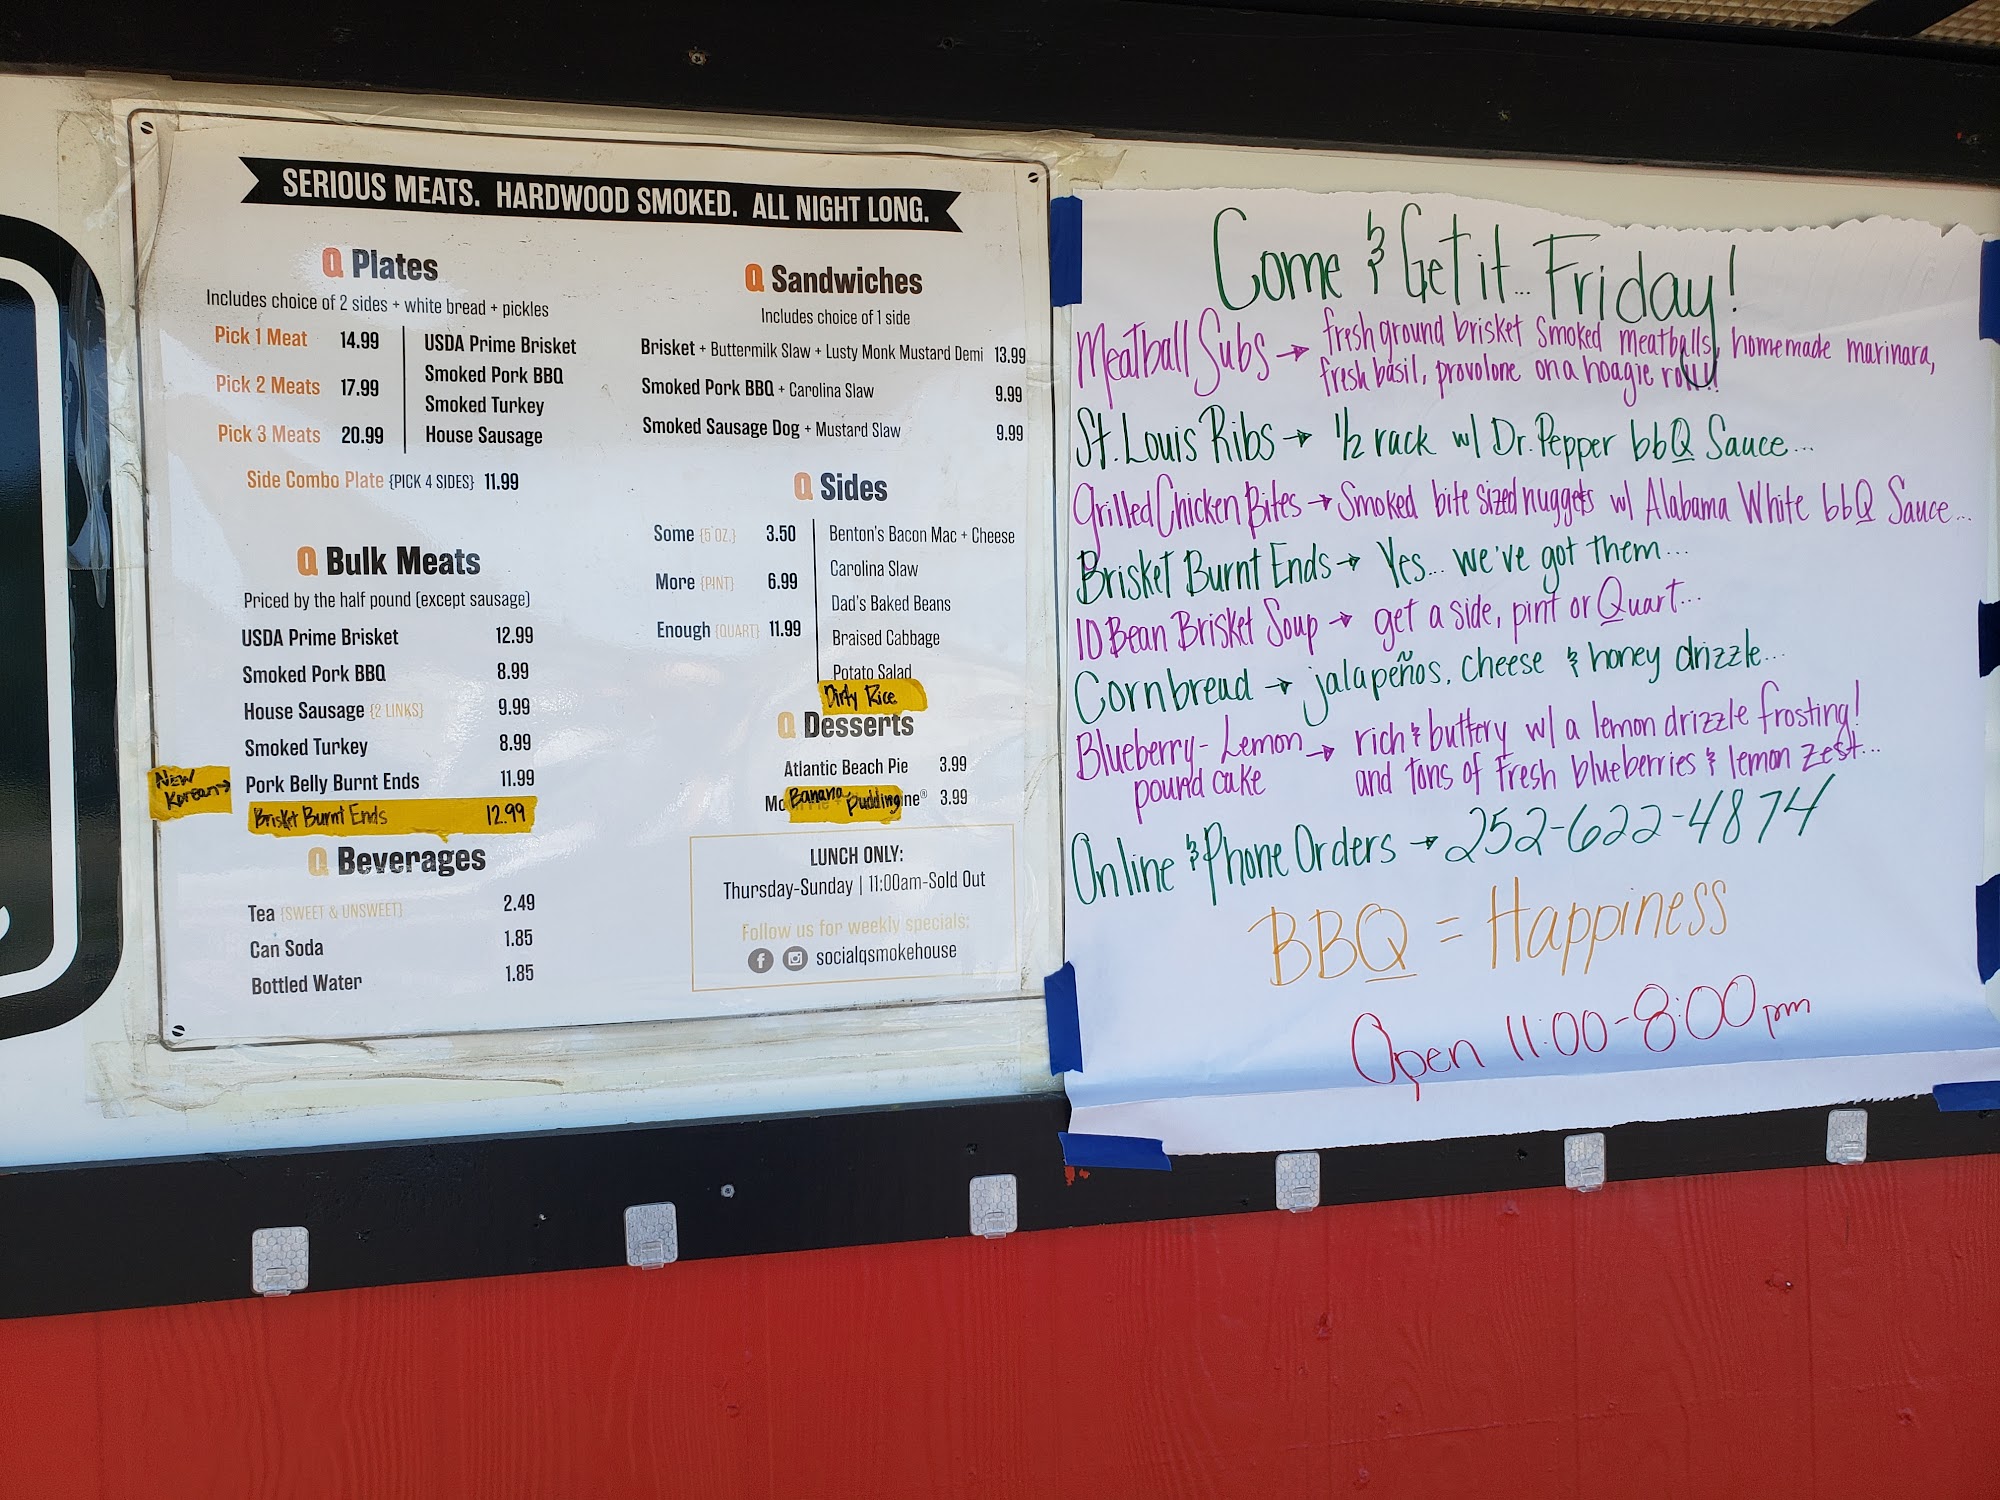 SERIOUS MEATS. HARDWOOD SMOKED. ALL NIGHT LONG.
Q Plates
Includes choice of 2 sides + white bread + pickles
Pick 1 Meat 14.99
Pick 2 Meats 17.99
Pick 3 Meats 20.99
USDA Prime Brisket
Smoked Pork BBQ
Smoked Turkey
House Sausage
Side Combo Plate {PICK 4 SIDES} 11.99
Q Bulk Meats
Priced by the half pound (except sausage)
USDA Prime Brisket 12.99
Smoked Pork BBQ 8.99
House Sausage {2 LINKS} 9.99
Smoked Turkey 8.99
New
Korean → Pork Belly Burnt Ends 11.99
Brisket Burnt Ends 12.99
Q Beverages
Tea {SWEET & UNSWEET} 2.49
Can Soda 1.85
Bottled Water 1.85
Q Sandwiches
Includes choice of 1 side
Brisket + Buttermilk Slaw + Lusty Monk Mustard Demi 13.99
Smoked Pork BBQ + Carolina Slaw 9.99
Smoked Sausage Dog + Mustard Slaw 9.99
Q Sides
Some {5 OZ.} 3.50
More {PINT} 6.99
Enough {QUART} 11.99
Benton's Bacon Mac + Cheese
Carolina Slaw
Dad's Baked Beans
Braised Cabbage
Potato Salad
Dirty Rice
Q Desserts
Atlantic Beach Pie 3.99
Banana Pudding 3.99
LUNCH ONLY:
Thursday-Sunday | 11:00am-Sold Out
Follow us for weekly specials:
socialqsmokehouse
Come & Get it... Friday!
Meatball Subs → fresh ground brisket smoked meatballs, homemade marinara,
fresh basil, provolone on a hoagie roll!!
St. Louis Ribs → 1/2 rack w/ Dr. Pepper bbQ Sauce...
Grilled Chicken Bites → Smoked bite sized nuggets w/ Alabama White bbQ Sauce...
Brisket Burnt Ends → Yes... we've got them...
10 Bean Brisket Soup → get a side, pint or Quart...
Cornbread → jalapeños, cheese & honey drizzle...
Blueberry-Lemon → rich & buttery w/ a lemon drizzle frosting!
pound cake and tons of fresh blueberries & lemon zest...
Online & Phone Orders → 252-622-4874
BBQ = Happiness
Open 11:00-8:00pm